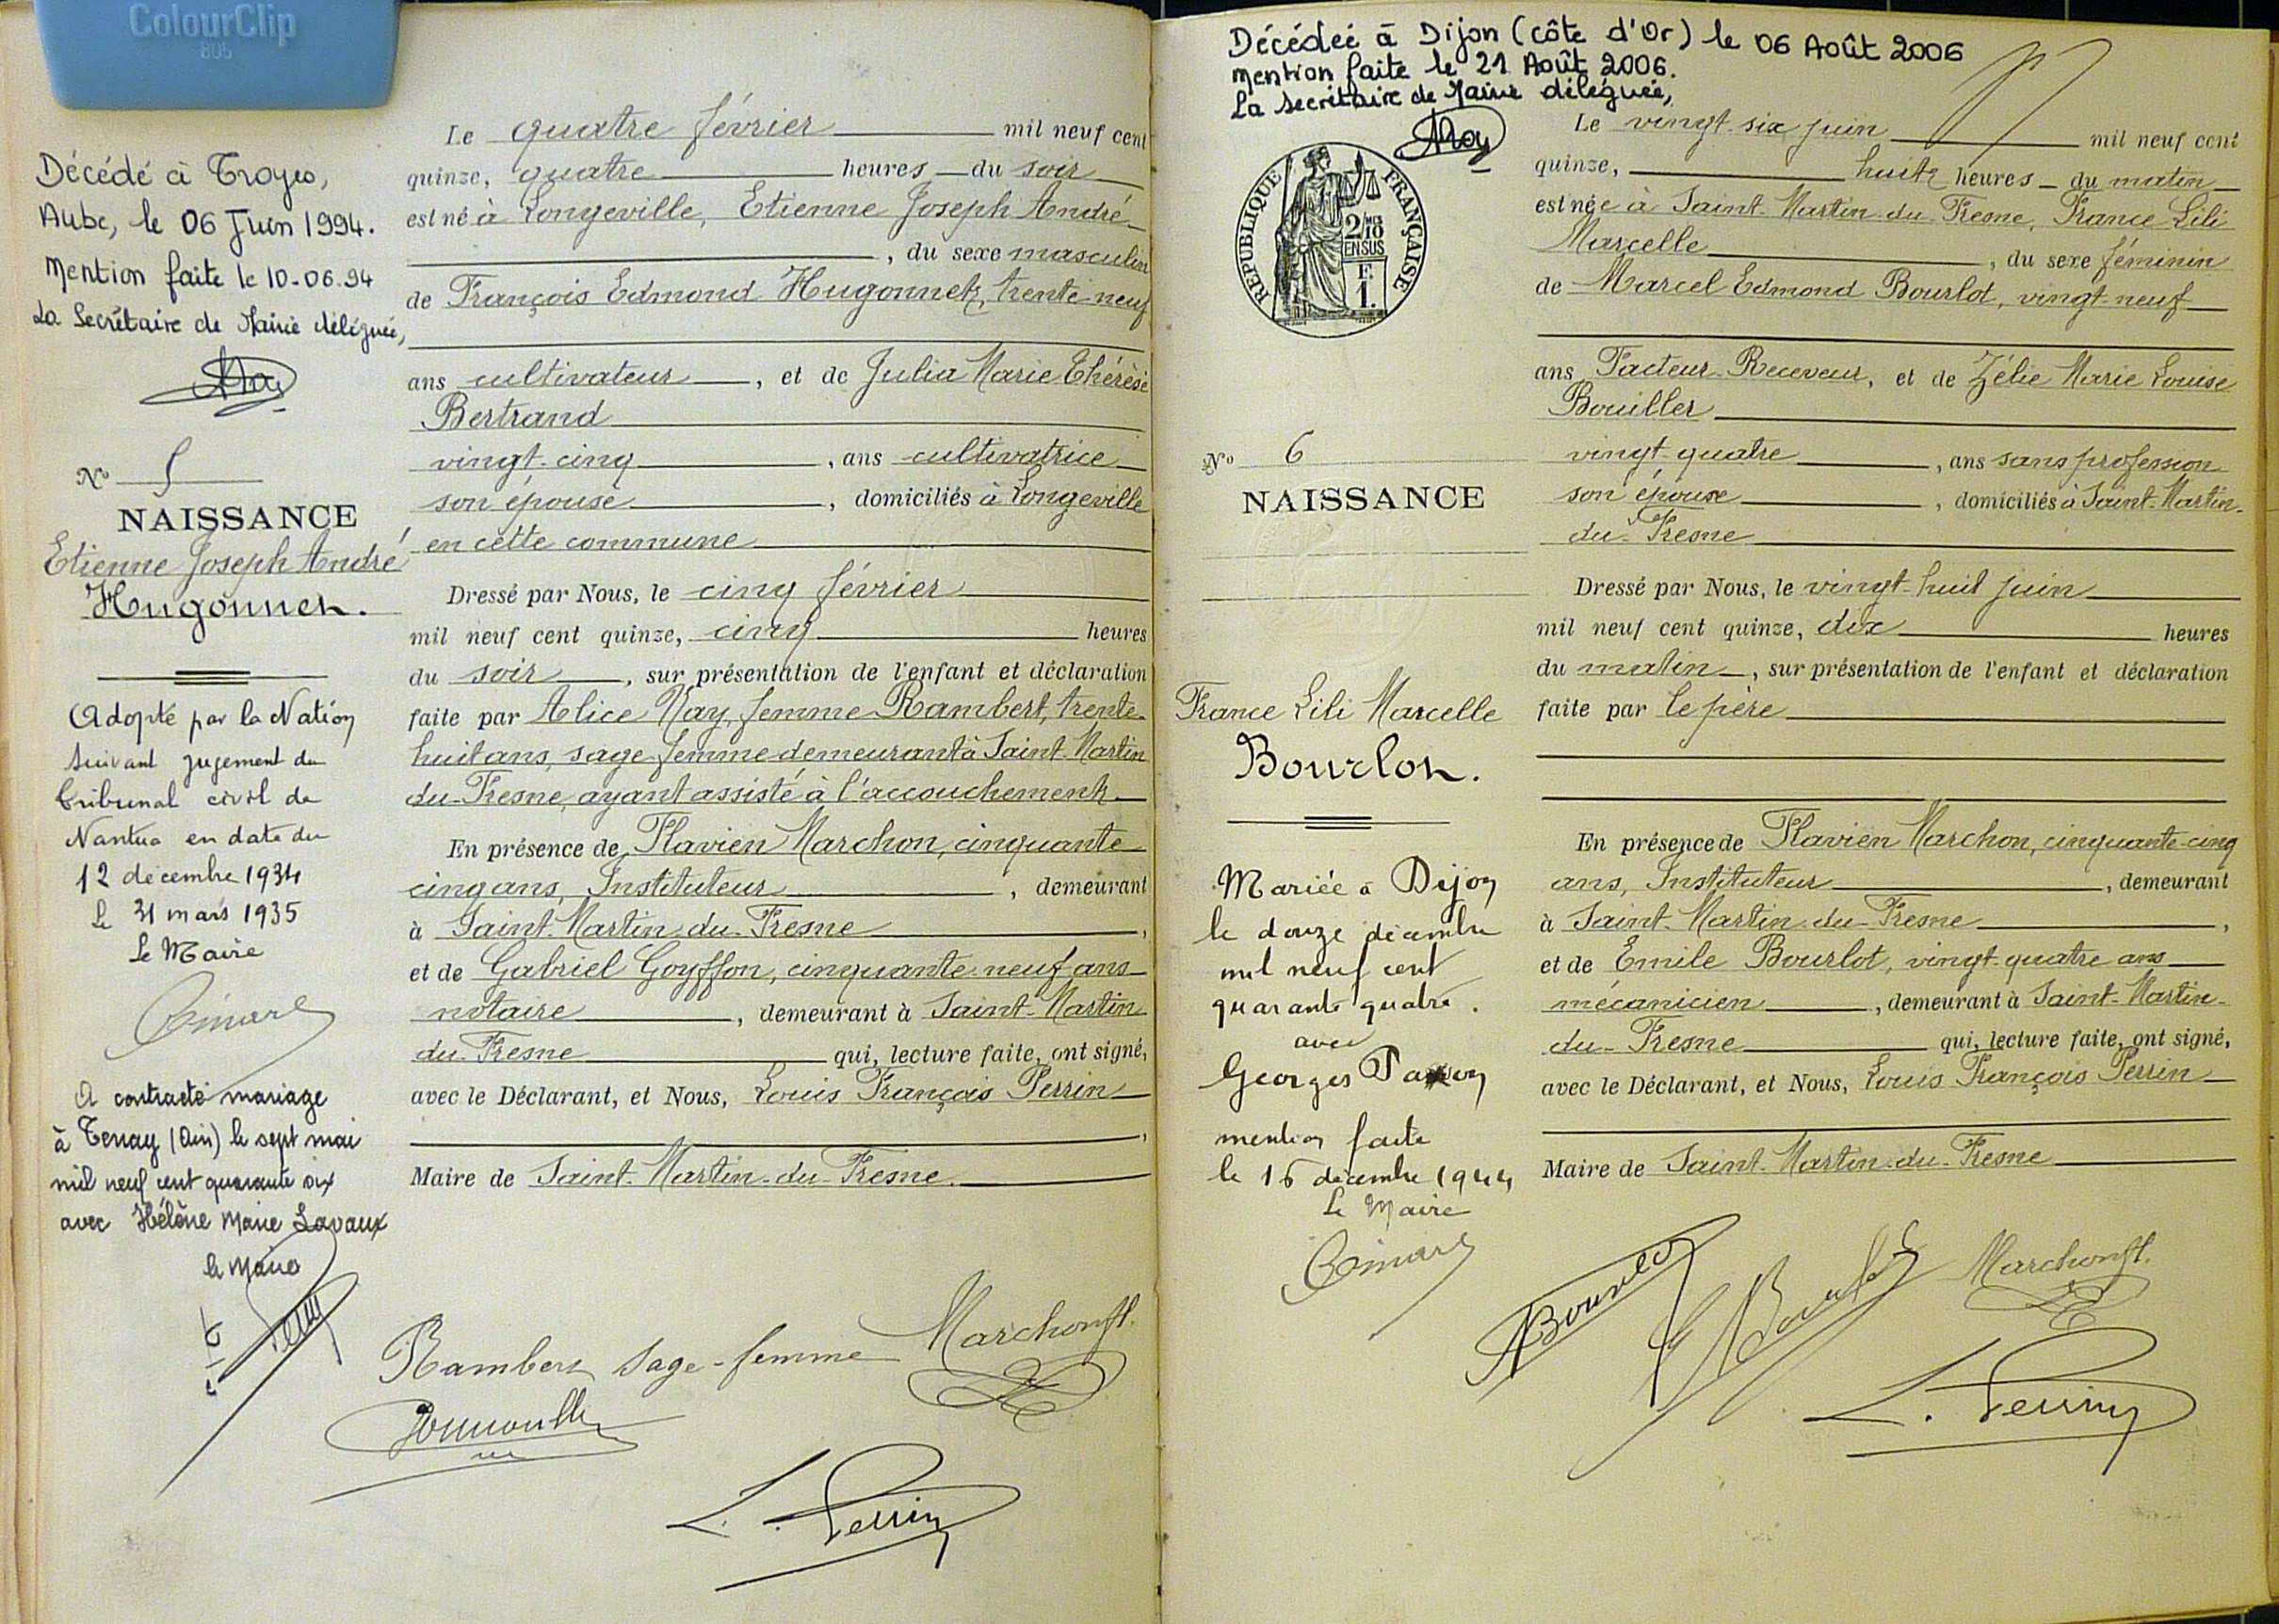 ColourClip
805
Décédé à Troyes,
Aube, le 06 Juin 1994.
Mention faite le 10-06-94
La Secrétaire de Mairie déléguée,
No 5
NAISSANCE
Etienne Joseph André
Hugonnet.
Adopté par la Nation
suivant jugement du
Tribunal civil de
Nantua en date du
12 décembre 1934
le 31 mars 1935
Le Maire
A contracté mariage
à Tenay (Ain) le sept mai
mil neuf cent quarante six
avec Hélène Marie Lavaux
le Maire
Le quatre février mil neuf cent
quinze, quatre heures du soir
est né à Longeville, Etienne Joseph André
, du sexe masculin
de François Edmond Hugonnet, trente-neuf
ans cultivateur, et de Julia Marie Thérèse
Bertrand
vingt-cinq, ans cultivatrice
son épouse, domiciliés à Longeville
en cette commune
Dressé par Nous, le cinq février
mil neuf cent quinze, cinq heures
du soir, sur présentation de l'enfant et déclaration
faite par Alice Nay, femme Rambert, trente-
huit ans, sage-femme demeurant à Saint-Martin
du-Fresne, ayant assisté à l'accouchement
En présence de Flavien Marchon, cinquante
cinq ans, Instituteur, demeurant
à Saint-Martin-du-Fresne,
et de Gabriel Goyffon, cinquante-neuf ans
notaire, demeurant à Saint-Martin
du-Fresne qui, lecture faite, ont signé,
avec le Déclarant, et Nous, Louis François Perrin
,
Maire de Saint-Martin-du-Fresne.
Rambert sage-femme
Marchon fl.
L. Perrin
Décédée à Dijon (côte d'Or) le 06 Août 2006
mention faite le 21 Août 2006.
La secrétaire de Mairie déléguée,
RÉPUBLIQUE FRANÇAISE
2/10 MES
EN SUS
F.
1.
No 6
NAISSANCE
France Lili Marcelle
Bourlot.
Mariée à Dijon
le douze décembre
mil neuf cent
quarante quatre.
avec
Georges
mention faite
le 16 décembre 1944
Le Maire
Le vingt-six juin mil neuf cent
quinze, huit heures du matin
est née à Saint-Martin-du-Fresne, France Lili
Marcelle, du sexe féminin
de Marcel Edmond Bourlot, vingt-neuf
ans Facteur-Receveur, et de Zélie Marie Louise
Bouiller
vingt-quatre, ans sans profession
son épouse, domiciliés à Saint-Martin-
du-Fresne
Dressé par Nous, le vingt-huit juin
mil neuf cent quinze, dix heures
du matin, sur présentation de l'enfant et déclaration
faite par le père
En présence de Flavien Marchon, cinquante-cinq
ans, Instituteur, demeurant
à Saint-Martin-du-Fresne,
et de Emile Bourlot, vingt-quatre ans
mécanicien, demeurant à Saint-Martin-
du-Fresne qui, lecture faite, ont signé,
avec le Déclarant, et Nous, Louis François Perrin
Maire de Saint-Martin-du-Fresne
Bourlot
Marchon fl.
L. Perrin